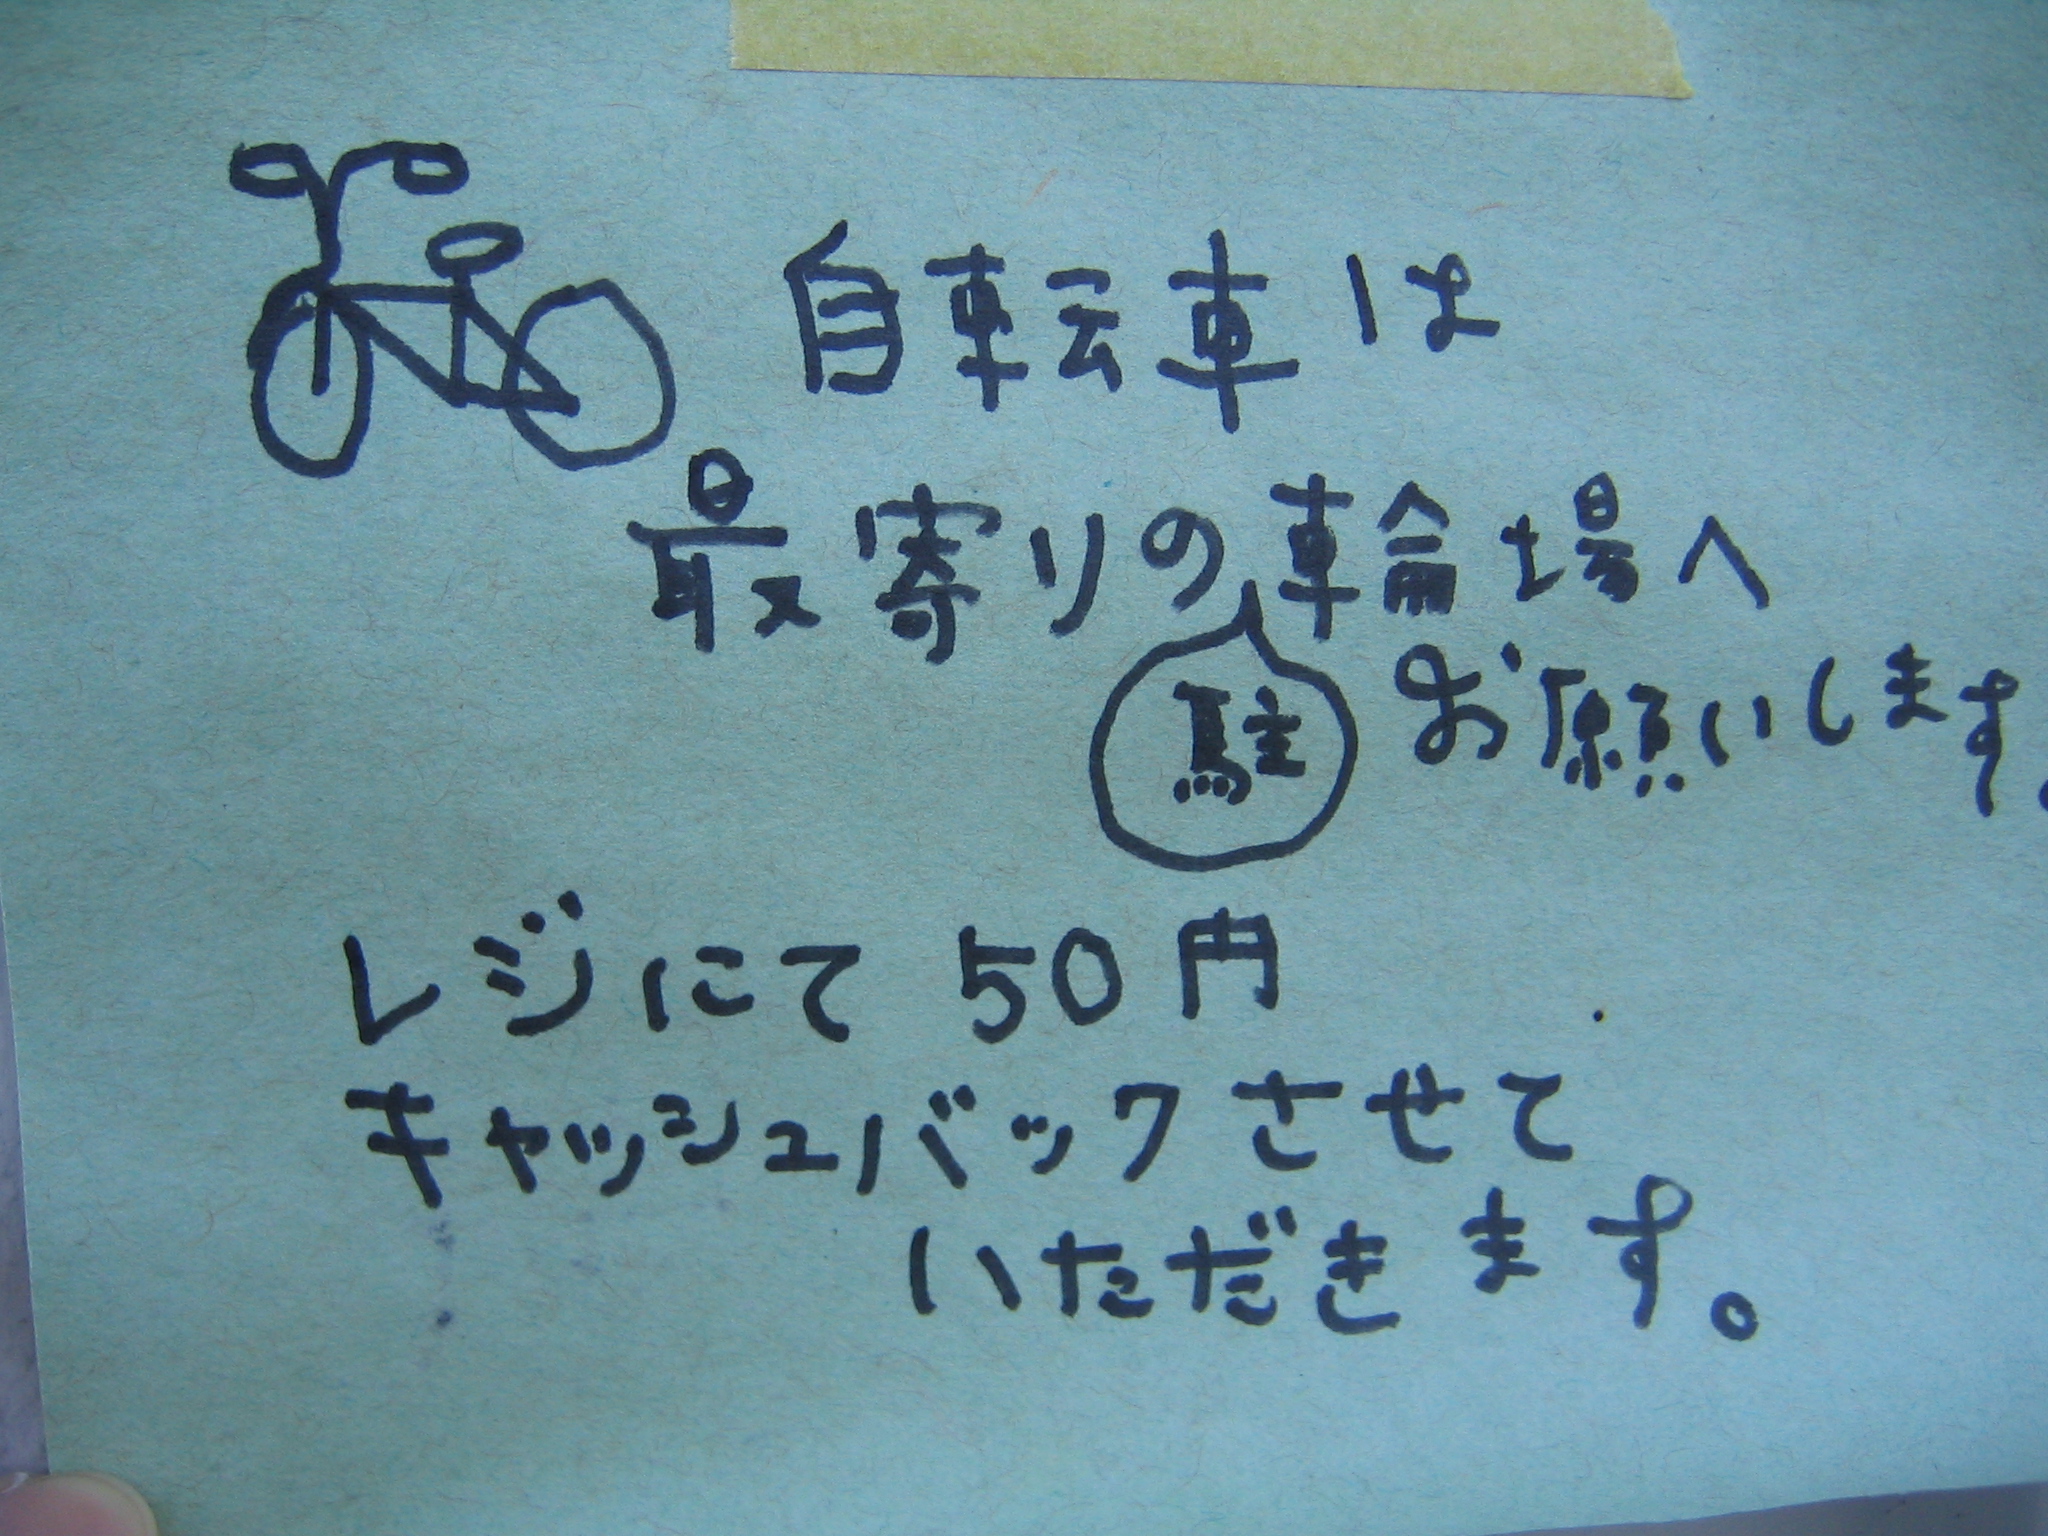 自転車は
最寄りの駐輪場へ
お願いします。
レジにて50円
キャッシュバックさせて
いただきます。